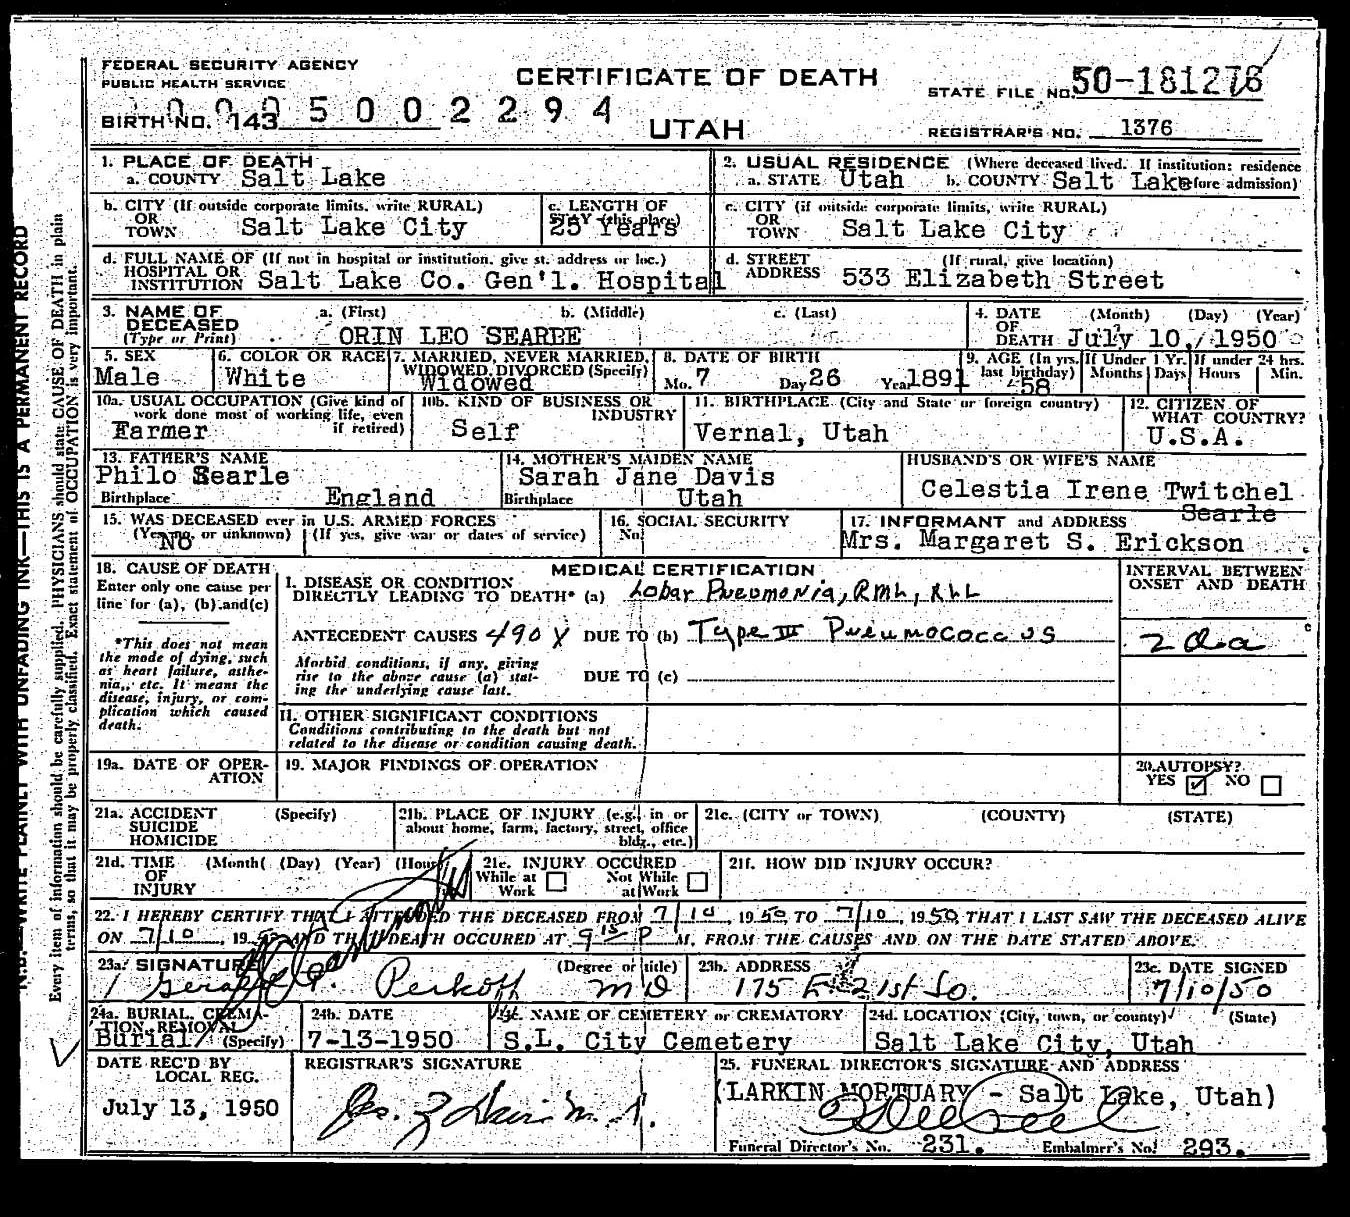 FEDERAL SECURITY AGENCY
PUBLIC HEALTH SERVICE
CERTIFICATE OF DEATH
STATE FILE NO. 50-181276
BIRTH NO. 143 0005002294
UTAH
REGISTRAR'S NO. 1376
1. PLACE OF DEATH
a. COUNTY Salt Lake
2. USUAL RESIDENCE (Where deceased lived. If institution: residence before admission)
a. STATE Utah b. COUNTY Salt Lake
b. CITY (If outside corporate limits, write RURAL)
OR
TOWN Salt Lake City
c. LENGTH OF
STAY (this place)
25 Years
c. CITY (if outside corporate limits, write RURAL)
OR
TOWN Salt Lake City
d. FULL NAME OF (If not in hospital or institution, give st. address or loc.)
HOSPITAL OR
INSTITUTION Salt Lake Co. Gen'l. Hospital
d. STREET (If rural, give location)
ADDRESS 533 Elizabeth Street
3. NAME OF a. (First) b. (Middle) c. (Last)
DECEASED
(Type or Print) ORIN LEO SEARLE
4. DATE (Month) (Day) (Year)
OF
DEATH July 10, 1950
5. SEX
Male
6. COLOR OR RACE
White
7. MARRIED, NEVER MARRIED,
WIDOWED, DIVORCED (Specify)
Widowed
8. DATE OF BIRTH
Mo. 7 Day 26 Year 1891
9. AGE (In yrs. last birthday) 58
If Under 1 Yr. Months Days
If under 24 hrs. Hours Min.
10a. USUAL OCCUPATION (Give kind of
work done most of working life, even
if retired)
Farmer
10b. KIND OF BUSINESS OR
INDUSTRY
Self
11. BIRTHPLACE (City and State or foreign country)
Vernal, Utah
12. CITIZEN OF
WHAT COUNTRY?
U.S.A.
13. FATHER'S NAME
Philo Searle
Birthplace England
14. MOTHER'S MAIDEN NAME
Sarah Jane Davis
Birthplace Utah
HUSBAND'S OR WIFE'S NAME
Celestia Irene Twitchel
Searle
15. WAS DECEASED ever in U.S. ARMED FORCES
(Yes, no, or unknown) (If yes, give war or dates of service)
NO
16. SOCIAL SECURITY
No.
17. INFORMANT and ADDRESS
Mrs. Margaret S. Erickson
18. CAUSE OF DEATH
Enter only one cause per
line for (a), (b) and (c)
*This does not mean
the mode of dying, such
as heart failure, asthe-
nia, etc. It means the
disease, injury, or com-
plication which caused
death.
MEDICAL CERTIFICATION
I. DISEASE OR CONDITION
DIRECTLY LEADING TO DEATH* (a) Lobar Pneumonia, RML, RLL
ANTECEDENT CAUSES 490X DUE TO (b) Type III Pneumococcus
Morbid conditions, if any, giving
rise to the above cause (a) stat-
ing the underlying cause last.
DUE TO (c)
II. OTHER SIGNIFICANT CONDITIONS
Conditions contributing to the death but not
related to the disease or condition causing death.
INTERVAL BETWEEN
ONSET AND DEATH
2 da
19a. DATE OF OPER-
ATION
19. MAJOR FINDINGS OF OPERATION
20. AUTOPSY?
YES ✓ NO
21a. ACCIDENT (Specify)
SUICIDE
HOMICIDE
21b. PLACE OF INJURY (e.g., in or
about home, farm, factory, street, office
bldg., etc.)
21c. (CITY or TOWN) (COUNTY) (STATE)
21d. TIME (Month) (Day) (Year) (Hour)
OF
INJURY
21e. INJURY OCCURED
While at Work Not While at Work
21f. HOW DID INJURY OCCUR?
22. I HEREBY CERTIFY THAT I ATTENDED THE DECEASED FROM 7/10, 1950 TO 7/10, 1950, THAT I LAST SAW THE DECEASED ALIVE
ON 7/10, 1950 AND THAT DEATH OCCURED AT 9 15 P M, FROM THE CAUSES AND ON THE DATE STATED ABOVE.
23a. SIGNATURE (Degree or title)
Perkoff MD
23b. ADDRESS
175 E. 21st So.
23c. DATE SIGNED
7/10/50
24a. BURIAL, CREMA-
TION, REMOVAL
(Specify) Burial
24b. DATE
7-13-1950
24c. NAME OF CEMETERY or CREMATORY
S.L. City Cemetery
24d. LOCATION (City, town, or county) (State)
Salt Lake City, Utah
DATE REC'D BY
LOCAL REG.
July 13, 1950
REGISTRAR'S SIGNATURE
25. FUNERAL DIRECTOR'S SIGNATURE AND ADDRESS
(LARKIN MORTUARY - Salt Lake, Utah)
Funeral Director's No. 231. Embalmer's No. 293.
N.B. WRITE PLAINLY WITH UNFADING INK—THIS IS A PERMANENT RECORD
Every item of information should be carefully supplied. PHYSICIANS should state CAUSE OF DEATH in plain
terms, so that it may be properly classified. Exact statement of OCCUPATION is very important.